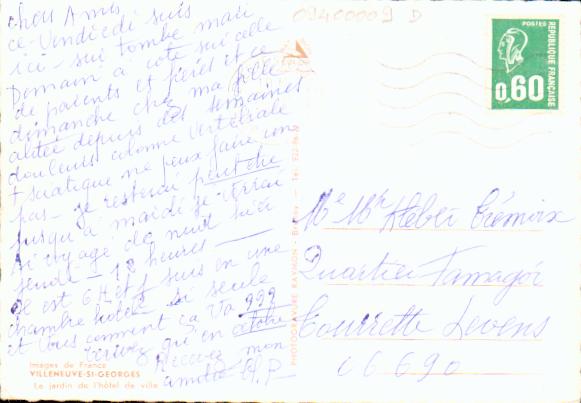 chers Amis
ce Vendredi suis
ici - sur tombe mari
Demain a coté sur celle
de parents et frères et ce
dimanche chez ma fille
alitée depuis des semaines
douleurs colonne vertébrale
+ sciatique ne peux faire un
pas - je resterai peut être
jusqu'à mardi je
voyage de nuit
jeudi - 18 heures
Il est 6 H et suis en une
chambre hotel si seule
et Vous comment ça Va ???
Ecrivez qu'en octobre
Recevez mon
amitié
09400009 D
POSTES
REPUBLIQUE FRANÇAISE
0,60
PHOTOGRAVURE RAYMON
Me Mr Kleber Crémoix
Quartier Tamagor
Tourrette Levens
06690
Images de France
VILLENEUVE-St-GEORGES
Le jardin de l'hôtel de ville